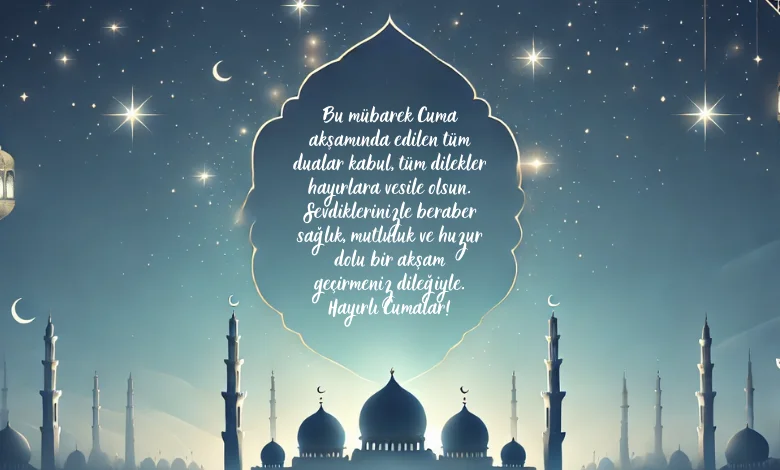 Bu mübarek Cuma
akşamında edilen tüm
dualar kabul, tüm dilekler
hayırlara vesile olsun.
Sevdiklerinizle beraber
sağlık, mutluluk ve huzur
dolu bir akşam
geçirmeniz dileğiyle.
Hayırlı Cumalar!